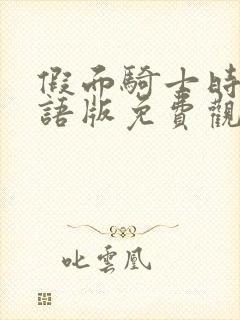 假面騎士時
語版免費觀
叱雲凰